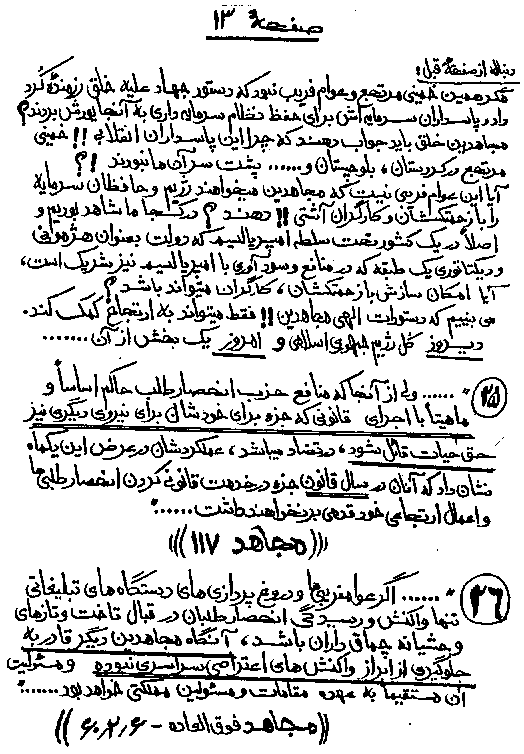 صفحهٔ ۱۳
دنباله از صفحهٔ قبل:
مگر همین خمینی مرتجع و عوام فریب نبود که دستور جهاد علیه خلق رزمنده کُرد
داد و پاسداران سرمایه‌اش برای حفظ نظام سرمایه داری به آنجا یورش بردند؟
مجاهدین خلق باید جواب دهند که چرا این پاسداران انقلاب!! خمینی
مرتجع در کردستان، بلوچستان و...... پشت سر آن ما نبودند !؟
آیا این عوام فریبی نیست که مجاهدین میخواهند رژیم و حافظان سرمایه
را با زحمتکشان و کارگران آشتی!! دهند؟ در کجا ما شاهد بوریم و
اصلاً در یک کشور تحت سلطه امپریالیسم که دولت بعنوان هژمونی
و دیکتاتوری یک طبقه که در منافع و سود آوری با امپریالیسم نیز شریک است،
آیا امکان سازش با زحمتکشان، کارگران میتواند باشد؟
می بینیم که دستورات الهی مجاهدین!! فقط میتواند به ارتجاع کمک کند.
دیروز کل رژیم جمهوری اسلامی و امروز یک بخش از آن .......
۲۵ "...... ولی از آنجا که منافع حزب انحصارطلب حاکم اساساً و
ماهیتاً با اجرای قانونی که جزء برای خودشان برای نیروی دیگری نیز
حق حیات قائل بشود، در تضاد میباشد، عملکردشان در عرض این یکماه
نشان داد که آنان در سال قانون جزء در خدمت قانونی کردن انحصارطلبی‌ها
و اعمال ارتجاعی خود قدمی برنخواهند داشت ......"
(((مجاهد ۱۱۷)))
۲۶ "...... اگر عوامفریبی‌ها و دروغ پردازی های دستگاه های تبلیغاتی
تنها واکنش و رسیدگی انحصارطلبان در قبال تاخت و تازهای
وحشیانه چماقداران باشد، آنگاه مجاهدین دیگر قادر به
جلوگیری از ابراز واکنش های اعتراضی سراسری نبوده و مسئولیت
آن مستقیماً به عهده مقامات و مسئولین مملکتی خواهد بود ......"
((مجاهد فوق العاده - ۶۰،۲،۶))